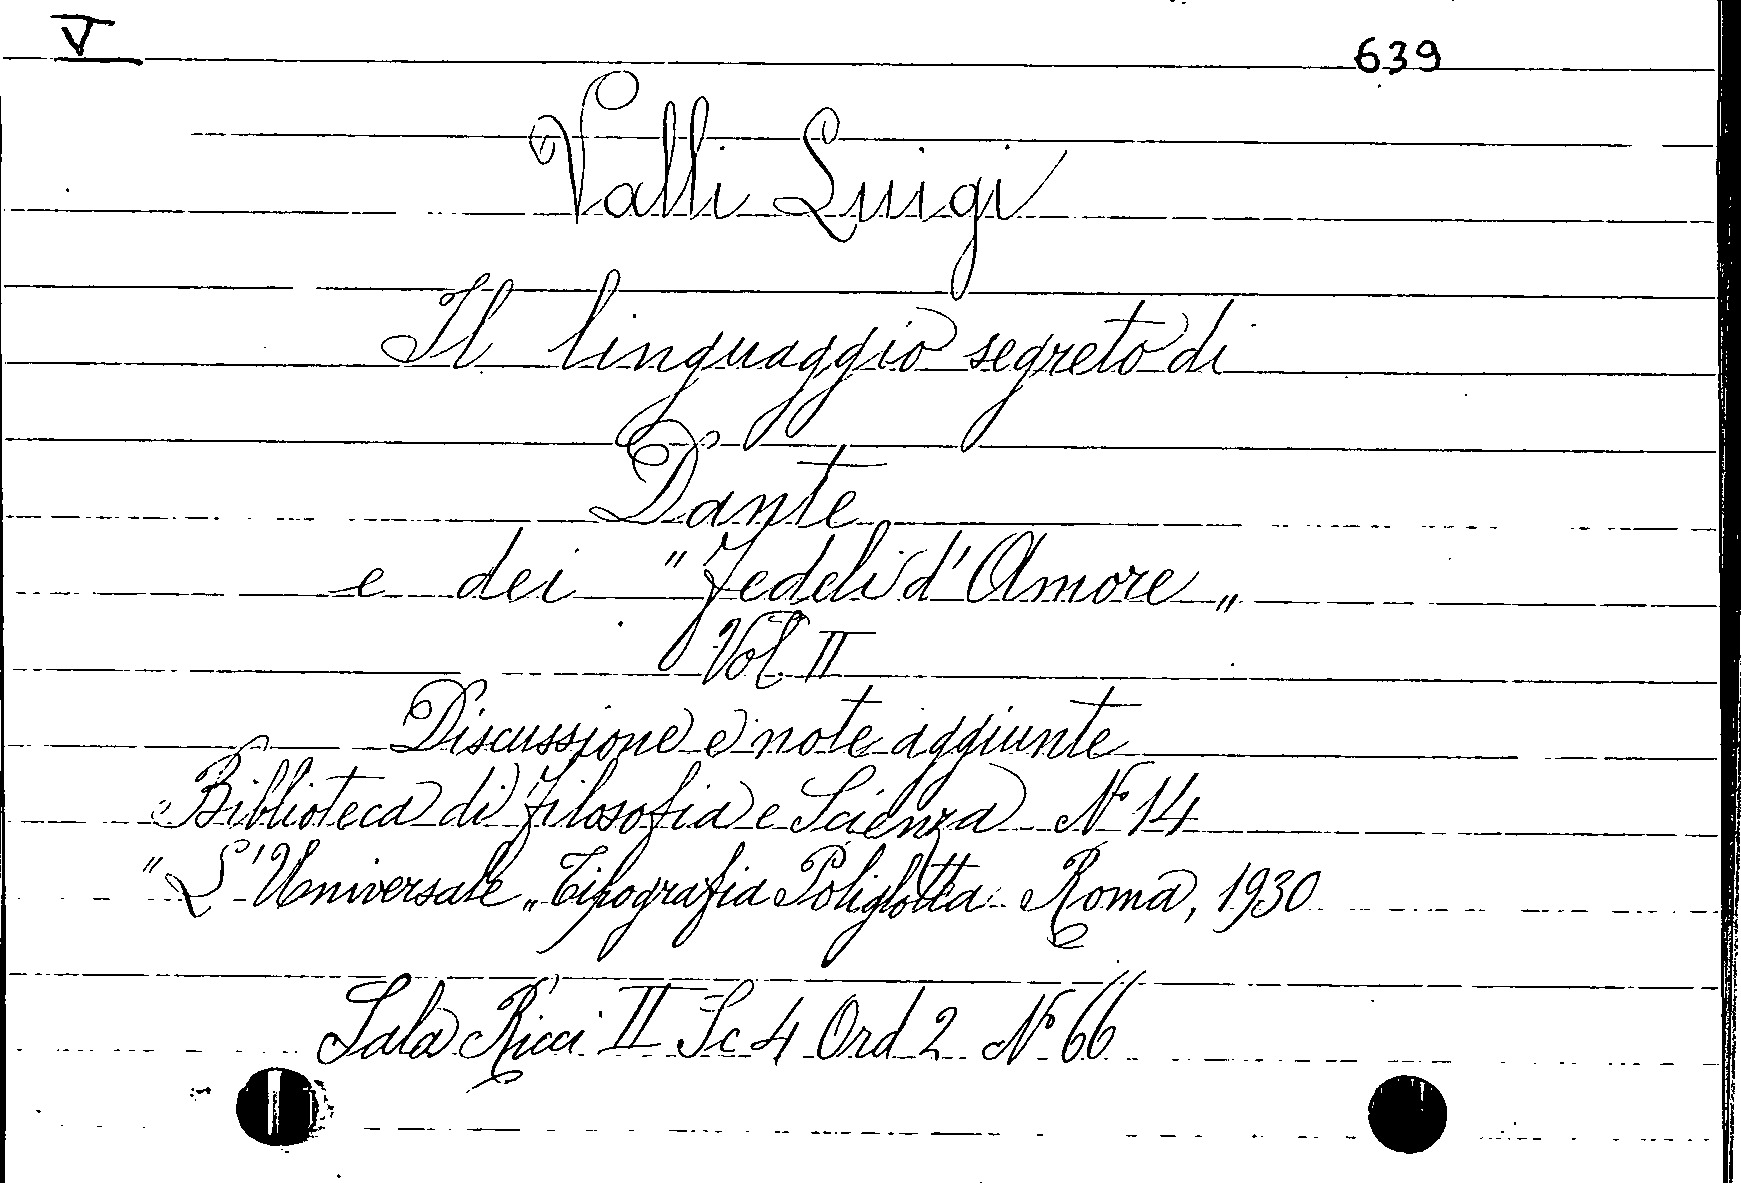 V
639
Valli Luigi
Il linguaggio segreto di
Dante
e dei "Fedeli d'Amore„
Vol II
Discussione e note aggiunte
Biblioteca di Filosofia e Scienza N 14
"L'Universale„ Tipografia Poliglotta Roma, 1930
Sala Ricci II Sc 4 Ord 2 N 66